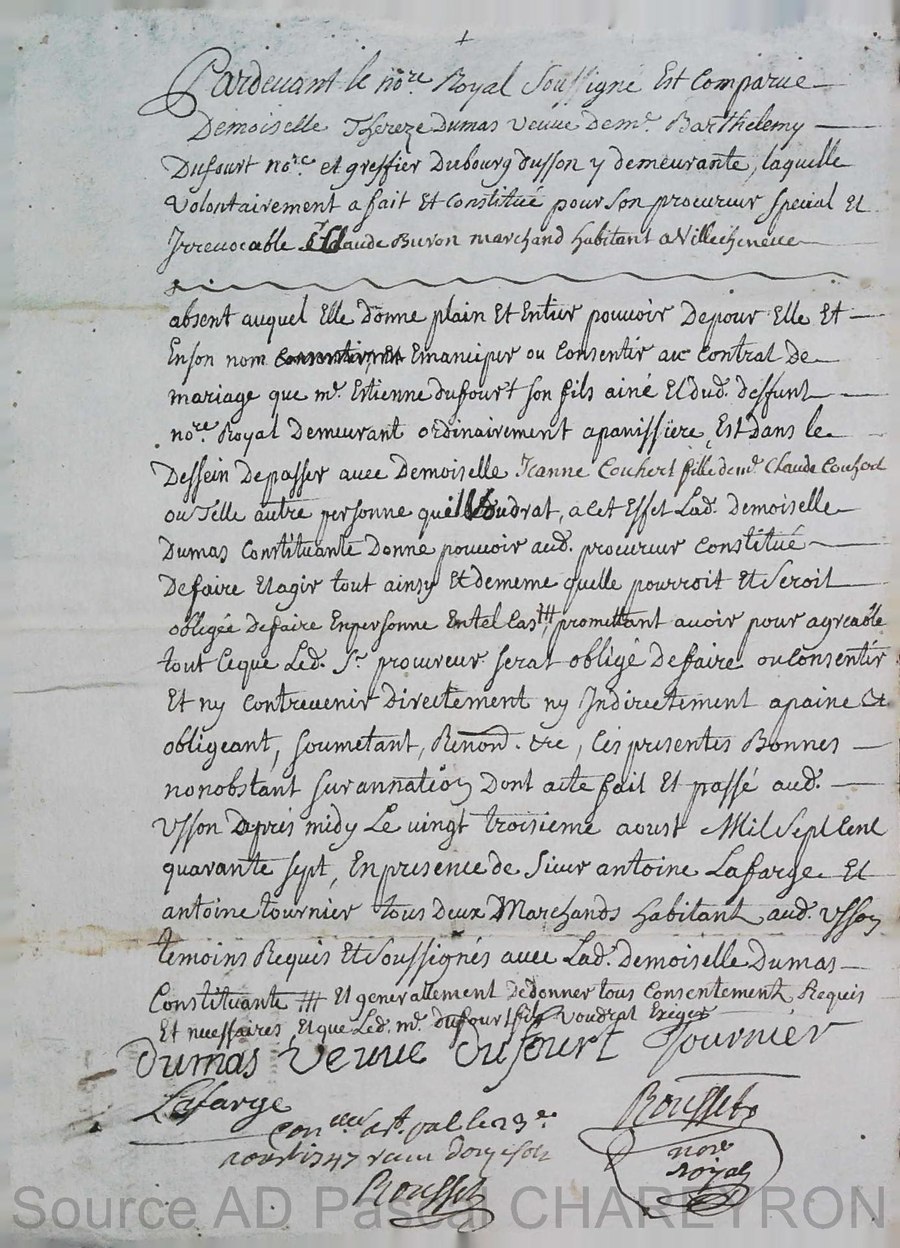 +
Pardevant le no.re Royal Soussigné Est Comparüe
Demoiselle Thereze Dumas veuve de m.r Barthelemy
Dufourt no.re et greffier Dubourg dusson y demeurante, laquelle
volontairement a fait Et Constitué pour Son procureur special Et
Irrevocable Claude Buron marchand habitant a Villecheneve
absent auquel Elle donne plain Et Entier pouvoir De pour Elle Et
En son nom Emanciper ou Consentir au contrat de
mariage que m.r Estienne dufourt son fils ainé Et dud. deffunt
no.re Royal Demeurant ordinairement a panissiere, Est dans le
Dessein De passer avec Demoiselle Jeanne Couhert fille de m.r Claude Couhert
ou Telle autre personne quil Voudrat, a Cet Effet Lad. Demoiselle
Dumas Constituante Donne pouvoir aud. procureur Constitué
De faire Et agir tout ainsy Et de meme quelle pourroit Et Seroit
obligée de faire En personne En tel Cas ###, promettant avoir pour agreable
tout Ce que Led. S.r procureur serat obligé De faire ou Consentir
Et ny Contrevenir Directement ny Indirectement a paine &.
obligeant, Soumetant, Renond. &c, Ces presentes Bonnes
nonobstant surannation Dont acte fait Et passé aud.
Usson Depris midy Le vingt troisieme aoust Mil Sept Cent
quarante sept, En presence de Sieur antoine Lafarge Et
antoine tournier tous Deux Marchands habitant aud. Usson
temoins Requis Et Soussignés avec Lad. Demoiselle Dumas
Constituante ### Et generallement de donner tous Consentement Requis
Et necessaires, Et que Led. m.r dufourt fils voudrat Exiger
Dumas veuve Dufourt Tournier
Lafarge Rousset
no.re
Royal
1747
Rousset
Source AD Pascal CHAREYRON